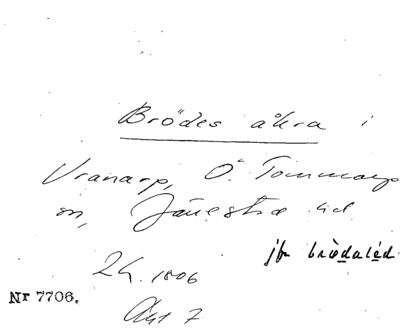 Brödes åkra i
Vranarp, Ö. Tommarp
sn, Järrestad hd.
jfr brödaled.
24. 1806
Akt 7
Nr 7706.